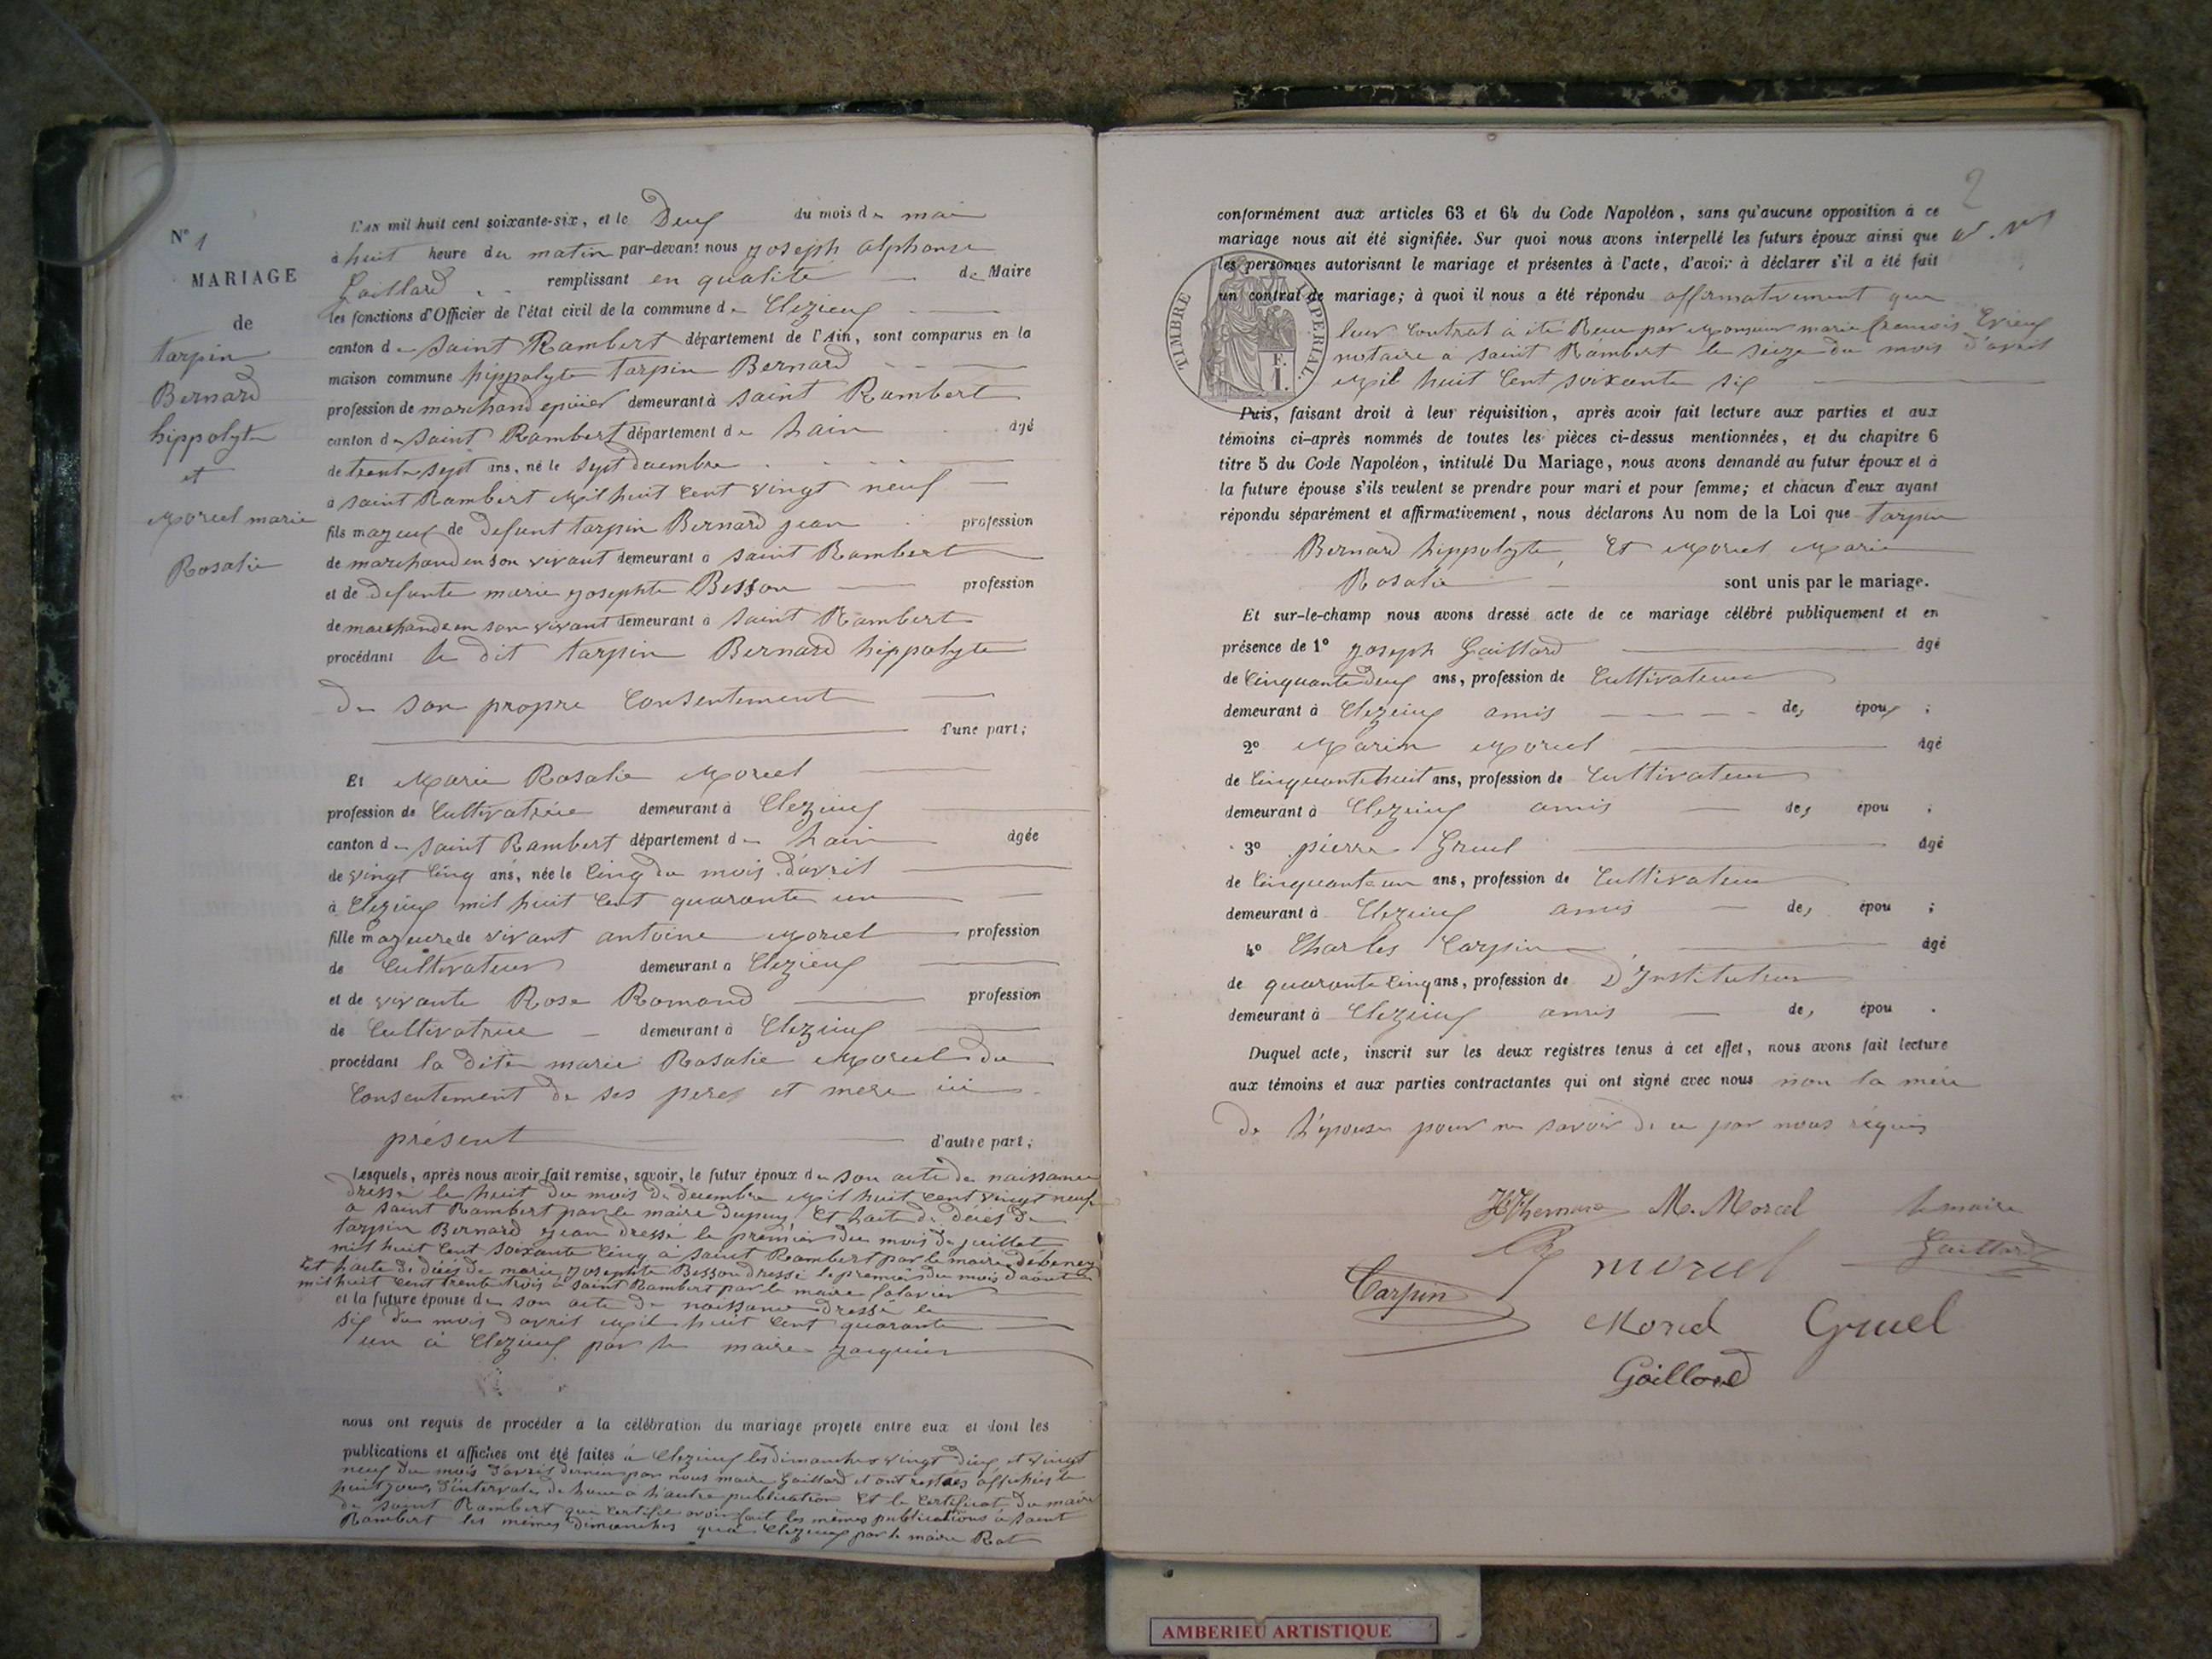 N° 1
MARIAGE
de
tarpin
Bernard
hippolyte
et
Morcel marie
Rosalie
L'an mil huit cent soixante-six, et le Deux du mois de mai
à huit heure du matin par-devant nous joseph alphonse
Gaillard remplissant en qualité de Maire
les fonctions d'Officier de l'état civil de la commune de Clezieux
canton de saint Rambert département de l'Ain, sont comparus en la
maison commune hippolyte tarpin Bernard
profession de marchand epiciel demeurant à saint Rambert
canton de saint Rambert département de Lain âgé
de trente sept ans, né le sept decembre
à saint Rambert Mil huit Cent vingt neuf
fils majeuf de defunt tarpin Bernard jean profession
de marchand en son vivant demeurant à saint Rambert
et de defunte marie josephte Besson profession
de marchande en son vivant demeurant à saint Rambert
procédant le dit tarpin Bernard hippolyte
de son propre Consentement
d'une part;
Et Marie Rosalie Morcel
profession de Cultivatrice demeurant à Clezieux
canton de saint Rambert département de Lain âgée
de vingt Cinq ans, née le Cinq du mois d'avril
à Clezieux mil huit Cent quarante un
fille majeure de vivant antoine Morcel profession
de Cultivateur demeurant à Clezieux
et de vivante Rose Romand profession
de Cultivatrice demeurant à Clezieux
procédant la dite marie Rosalie Morcel du
Consentement de ses peres et mere ici
présent d'autre part;
Lesquels, après nous avoir fait remise, savoir, le futur époux de son acte de naissance
dressé le huit du mois de decembre Mil huit Cent vingt neuf
a saint Rambert par le maire dupuy Et Lacte de décés de
tarpin Bernard jean dressé le premier du mois de juillet
mil huit Cent soixante Cinq à saint Rambert par le maire débeney
Et Lacte de décés de marie josephte Besson dressé le premier du mois d'aout
mil huit Cent trente trois à saint Rambert par le maire falavier
et la future épouse de son acte de naissance dressé le
six du mois d'avril Mil huit Cent quarante
un à Clezieux par le maire jacquier
nous ont requis de procéder à la célébration du mariage projeté entre eux et dont les
publications et affiches ont été faites à Clezieux les dimanches vingt deux et vingt
neuf du mois d'avril dernier par nous maire Gaillard et ont restées affichées le
huit jours d'intervales de Lune a Lautre publication Et le Certificat du maire
de saint Rambert qui Certifie avoir fait les mêmes publications à saint
Rambert les mêmes dimanches qua Clezieux par le maire Rot
2
conformément aux articles 63 et 64 du Code Napoléon, sans qu'aucune opposition à ce
mariage nous ait été signifiée. Sur quoi nous avons interpellé les futurs époux ainsi que
les personnes autorisant le mariage et présentes à l'acte, d'avoir à déclarer s'il a été fait
un contrat de mariage; à quoi il nous a été répondu affirmativement que
leur Contrat à été Recu par Monsieur marie francois Evieux
notaire a saint Rambert le seize du mois d'avril
Mil huit Cent soixante six
TIMBRE IMPERIAL
F.
1.
Puis, faisant droit à leur réquisition, après avoir fait lecture aux parties et aux
témoins ci-après nommés de toutes les pièces ci-dessus mentionnées, et du chapitre 6
titre 5 du Code Napoléon, intitulé Du Mariage, nous avons demandé au futur époux et à
la future épouse s'ils veulent se prendre pour mari et pour femme; et chacun d'eux ayant
répondu séparément et affirmativement, nous déclarons Au nom de la Loi que tarpin
Bernard hippolyte, Et Morcel Marie
Rosalie sont unis par le mariage.
Et sur-le-champ nous avons dressé acte de ce mariage célébré publiquement et en
présence de 1° joseph Gaillard âgé
de Cinquante deux ans, profession de Cultivateur
demeurant à Clezieux amis des époux ;
2° Marin Morcel âgé
de Cinquante huit ans, profession de Cultivateur
demeurant à Clezieux amis des épou ;
3° pierre Gruel âgé
de Cinquante un ans, profession de Cultivateur
demeurant à Clezieux amis des épou ;
4° Charles Carpin âgé
de quarante Cinq ans, profession de D'Instituteur
demeurant à Clezieux amis des épou .
Duquel acte, inscrit sur les deux registres tenus à cet effet, nous avons fait lecture
aux témoins et aux parties contractantes qui ont signé avec nous non la mère
de L'épouse pour ne savoir de ce par nous réquis
M. Morcel le maire
morcel Gaillard
Carpin
Morcel Gruel
Gaillard
AMBERIEU ARTISTIQUE